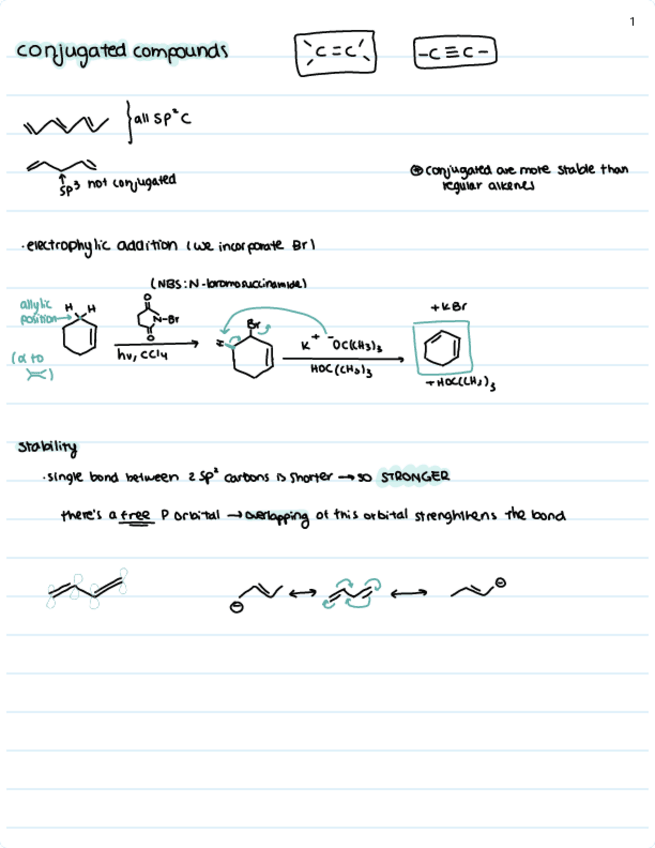 1
conjugated compounds
C=C
-C≡C-
}all sp²C
sp³ not conjugated
⊕ conjugated are more stable than
regular alkenes
·electrophylic addition (we incorporate Br)
(NBS: N-bromosuccinamide)
allylic
position
H H
O
N-Br
O
hν, CCl4
(α to
)
Br
H
K⁺ ⁻OC(CH3)3
HOC(CH3)3
+KBr
+HOC(CH3)3
Stability
·single bond between 2 sp² carbons is shorter → so STRONGER
there's a free P orbital → overlapping of this orbital strenghthens the bond
⊖ ↔ ↔ ⊖